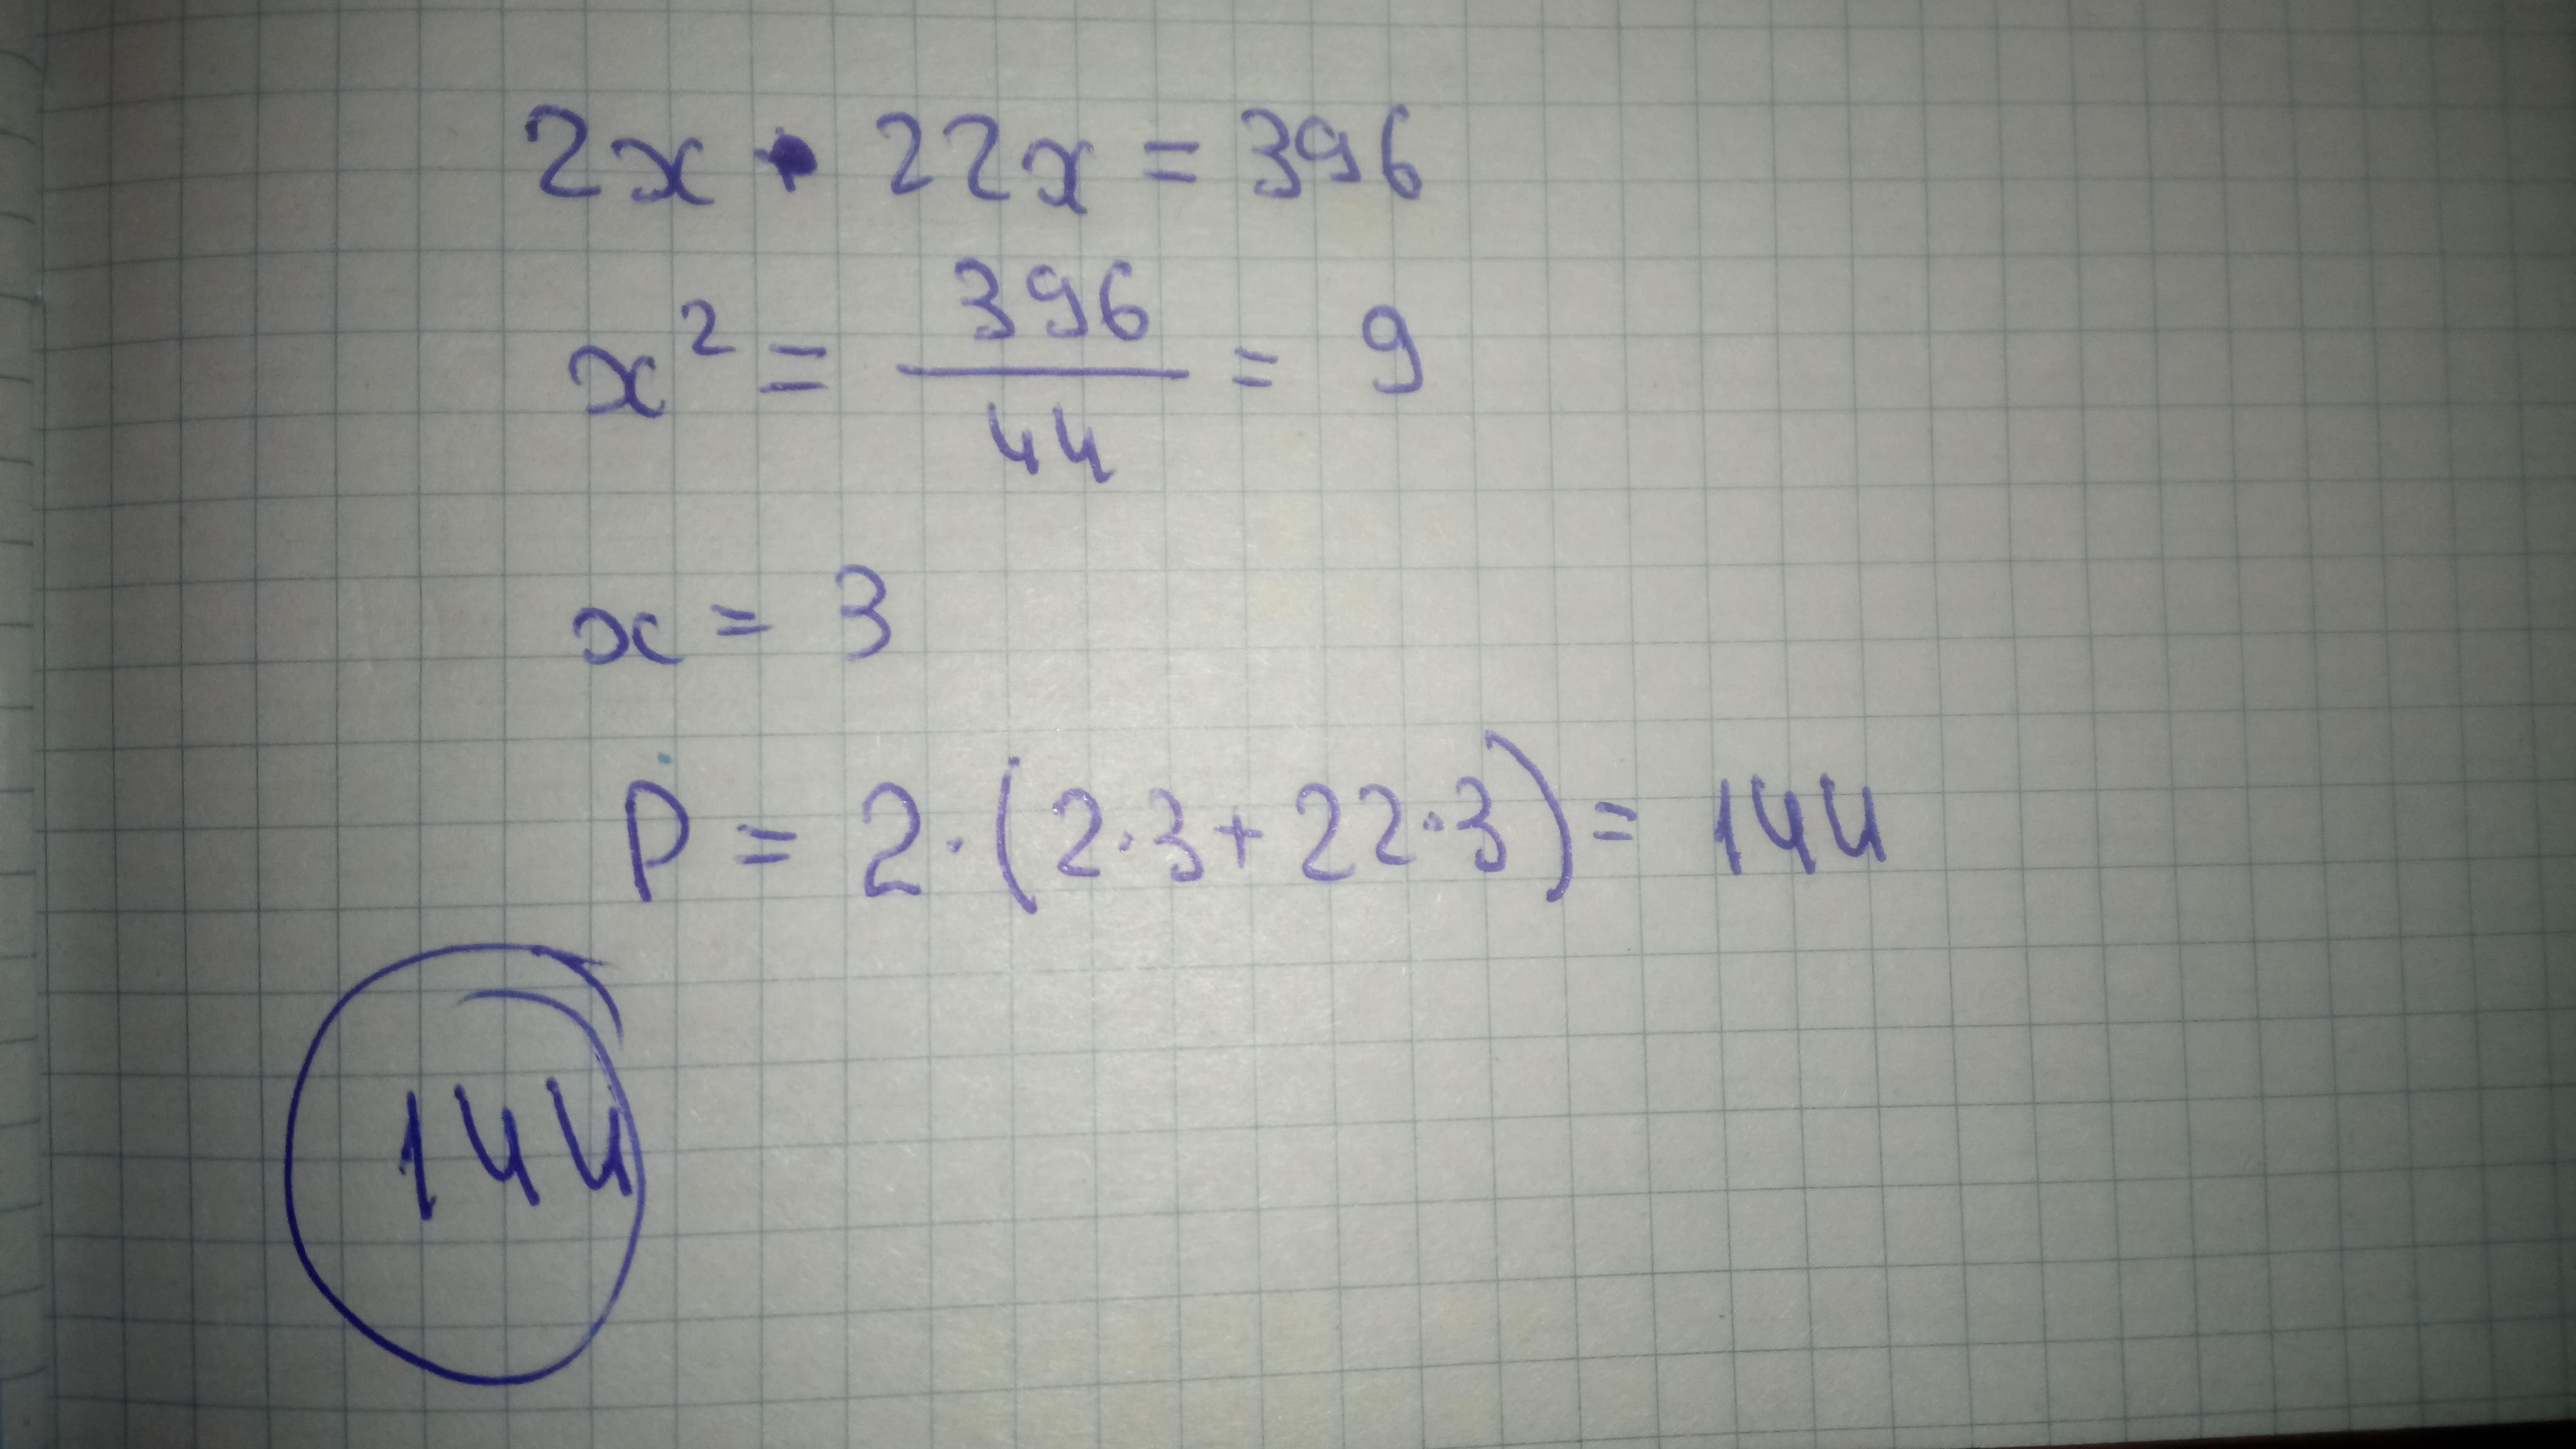 2x · 22x = 396
x² = 396/44 = 9
x = 3
P = 2·(2·3+22·3) = 144
144